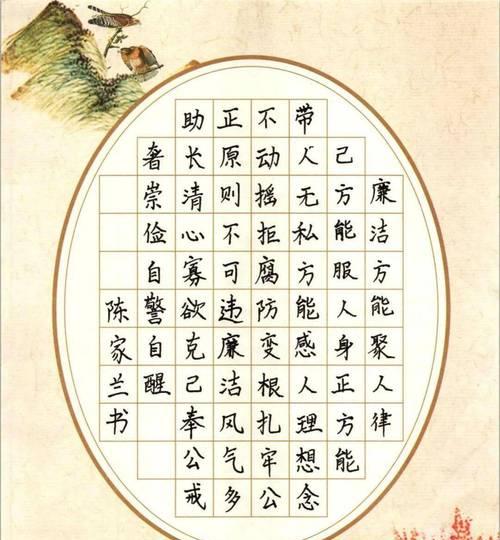 廉洁方能聚人律
己方能服人身正方能
带人无私方能感人理想念
不动摇拒腐防变根扎牢公
正原则不可违廉洁风气多
助长清心寡欲克己奉公戒
奢崇俭自警自醒
陈家兰书